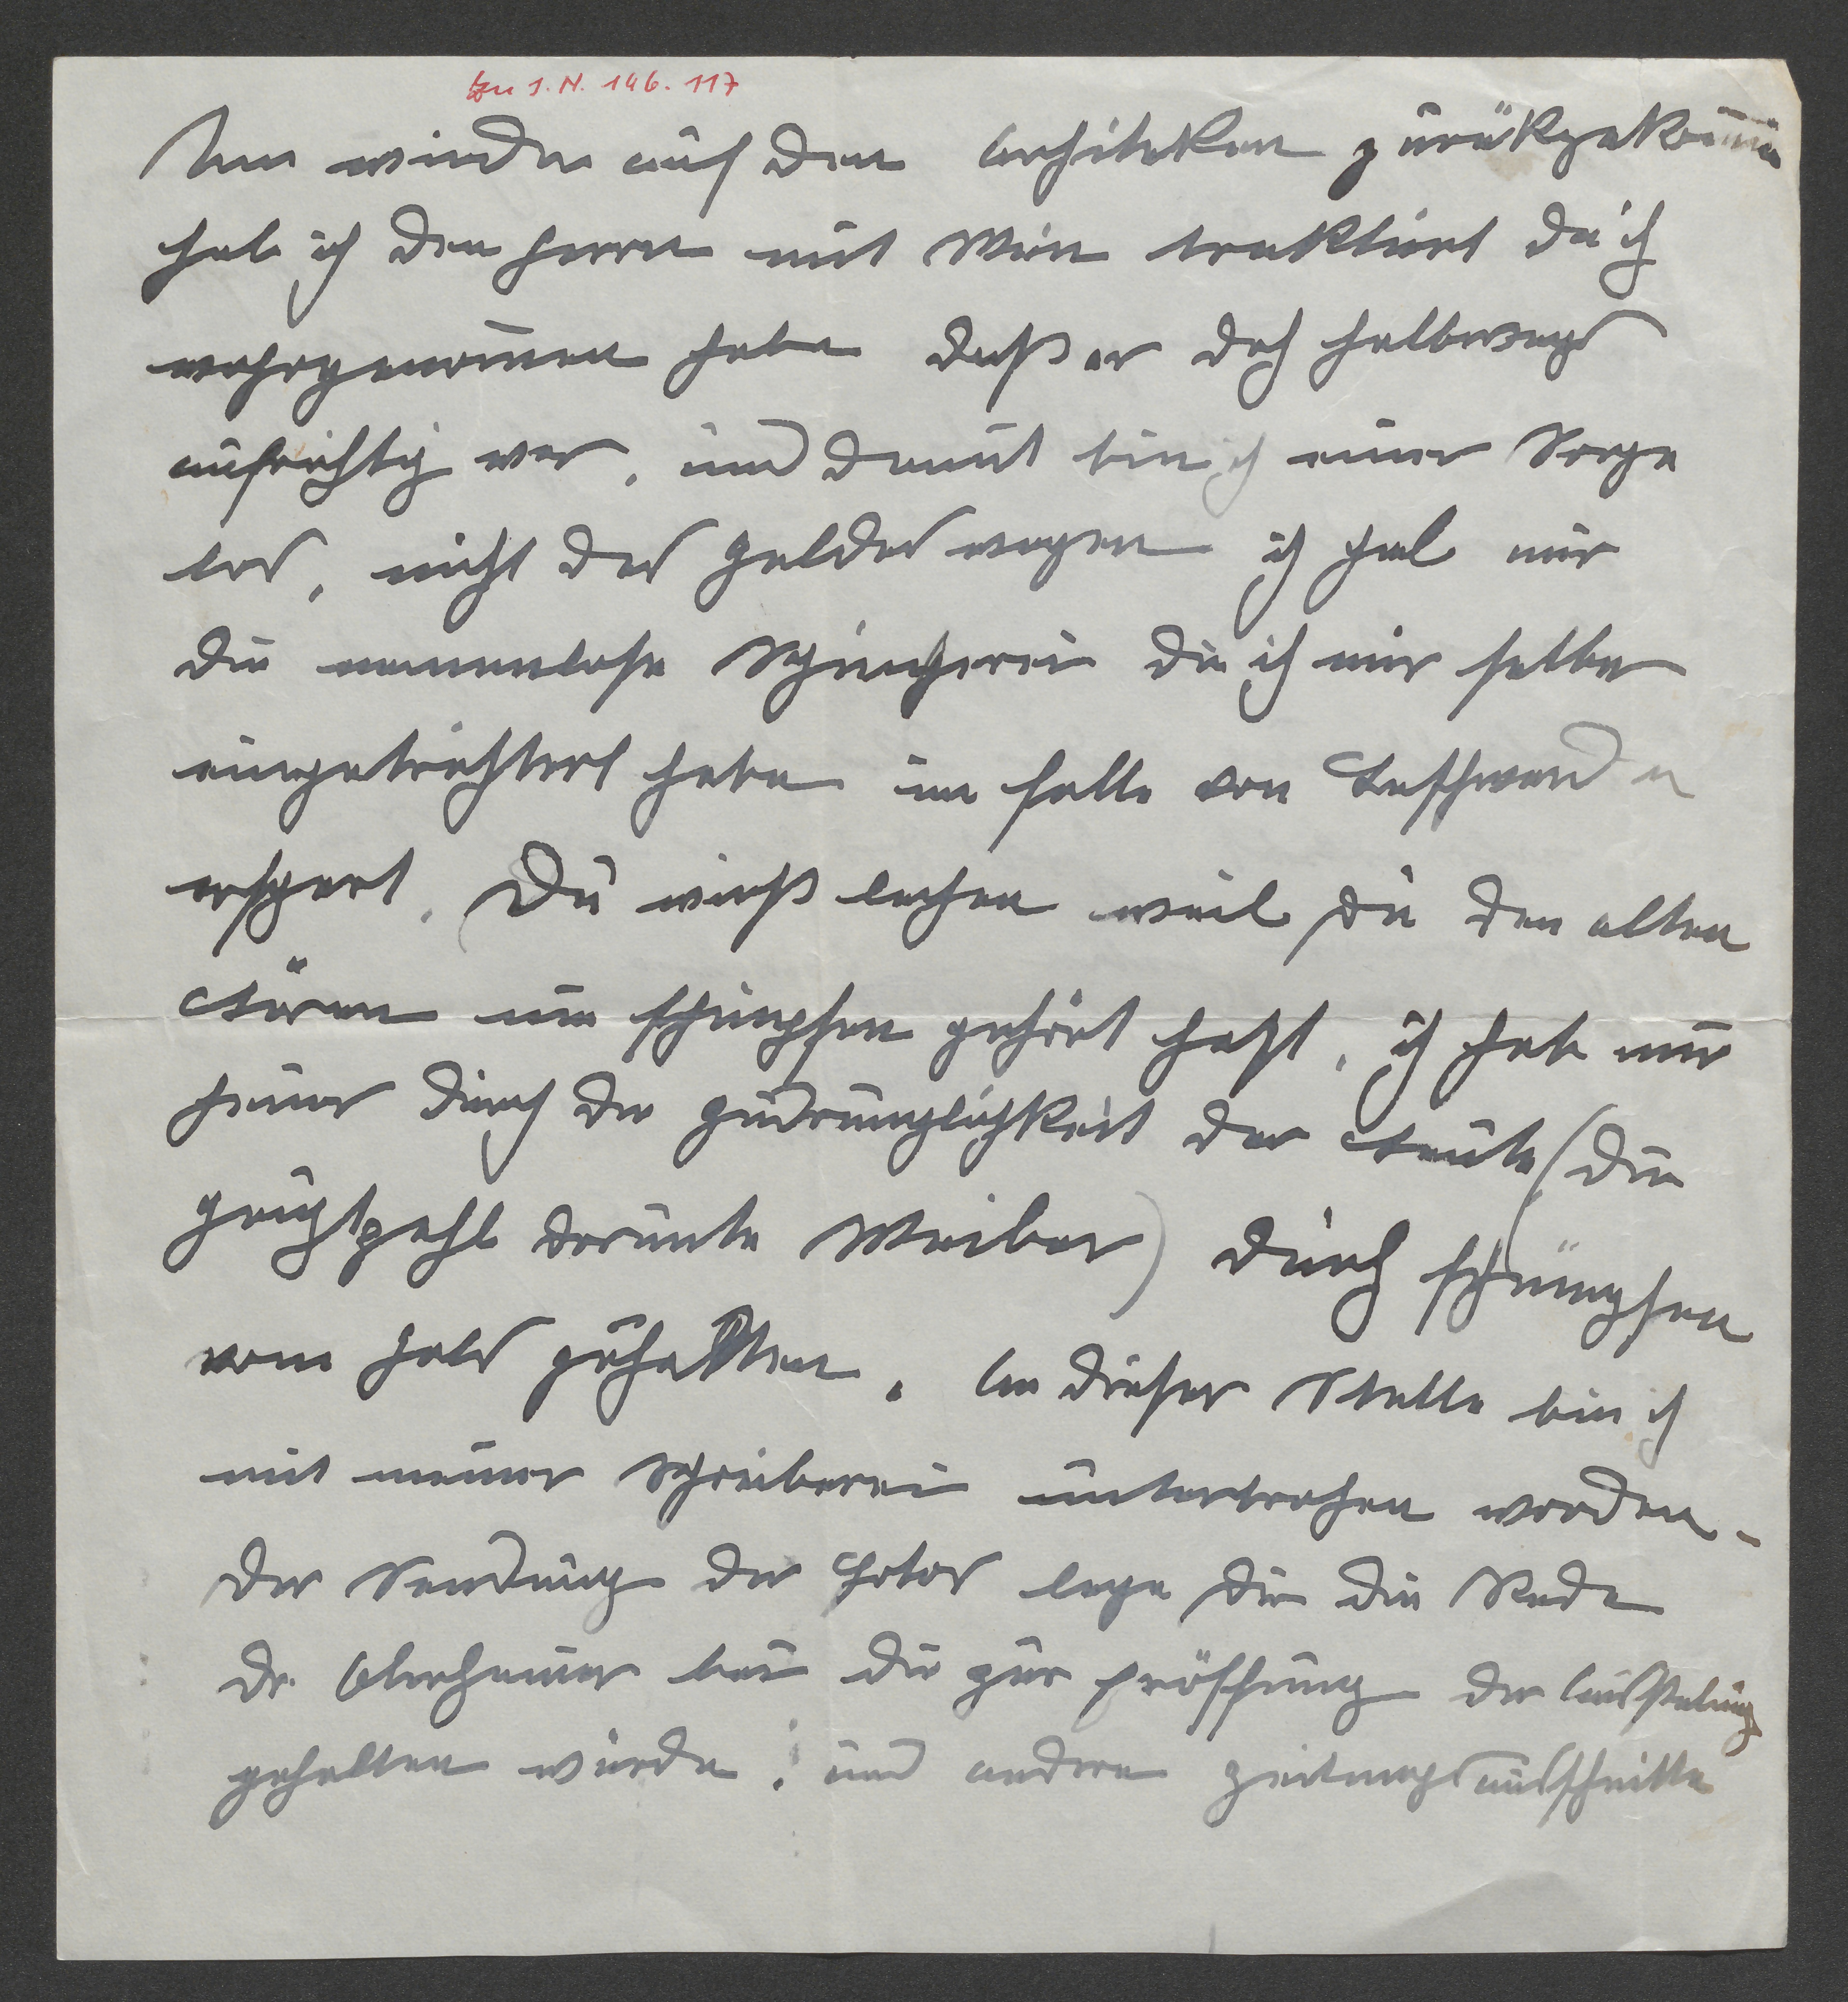 Zu I.N. 146.117
Um wieder auf den Architekten zurükgekom̄en
hab ich den Herren mit Wein traktiert da ich
wahrgenom̄en habe daß er doch halbwegs
aufrichtig war, und damit bin ich einer Sorge
los, nicht des Geldes wegen ich hab mir
die namenlose die ich mir selber
eingetrichtert habe im falle von
erspart. Du wirst lachen weil Du den alten
nie schimpfen gehört hast, ich hab mir
heuer durch die Zudrünglichkeit der Leute (die
Hauptzahl darunte Weiber) durch schümpfen
vom Hals gehalten. An dieser Stelle bin ich
mit meiner Schreiberei unterbrochen worden.
Der Sendung der Fotos lege dir die Rede
Dr. bei die zur Eröffnung der Ausstelung
gehalten wurde, und andere Zeitungsausschnitte